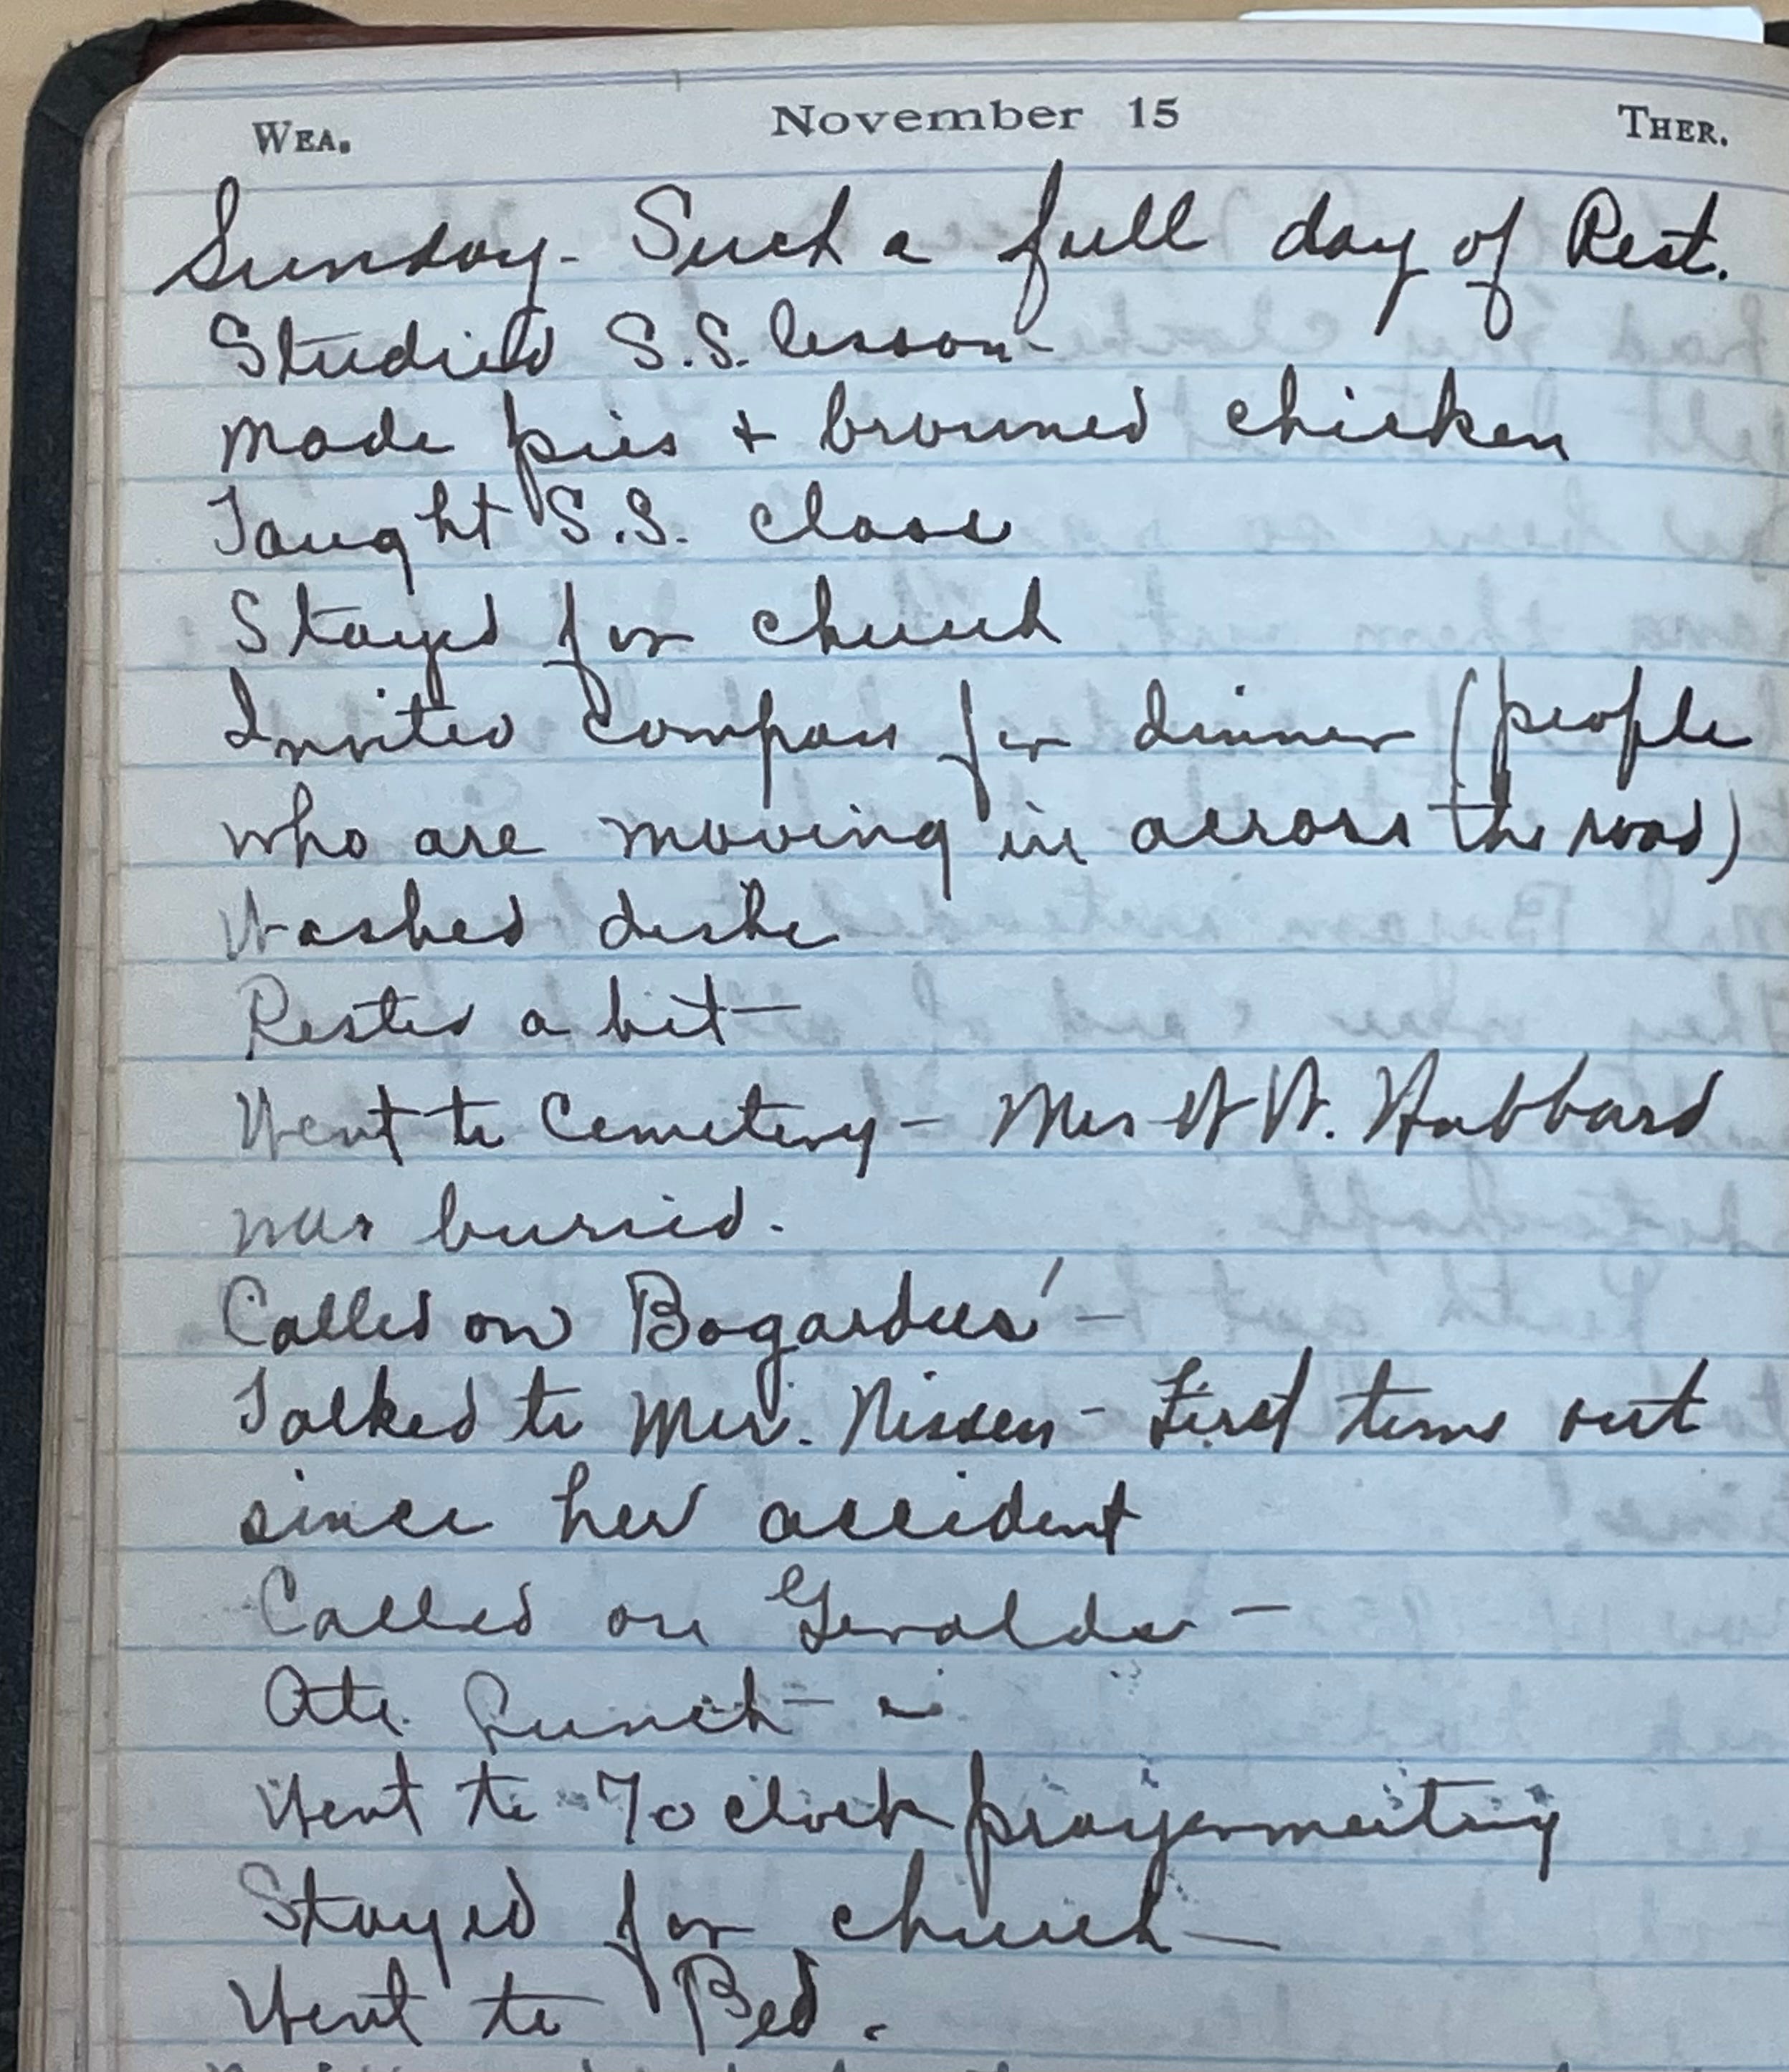 WEA. November 15 THER.
Sunday - Such a full day of Rest.
Studied S.S. lesson -
Made pies + browned chicken
Taught S.S. class
Stayed for church
Invited company for dinner (people
who are moving in across the road)
Washed dishes
Rested a bit -
Went to Cemetery - Mrs W. W. Hubbard
was buried.
Called on Bogardus' -
Talked to Mrs. Nissen - First time out
since her accident
Called on Geralds -
Ate Lunch -
Went to 7 o clock prayermeeting
Stayed for church -
Went to Bed.